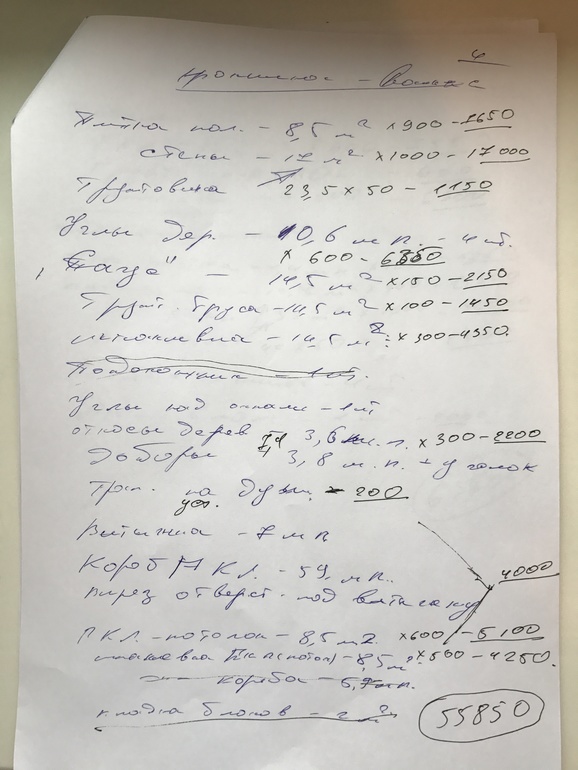 4
Плитка пол. - 8,5 м² x900 - 7650
стены - 17 м² x1000 - 17000
Грунтовка 23,5 x 50 - 1150
Углы дер. - 10,6 м.п. - 4 шт.
x 600 - 6350
14,5 м² x150 - 2150
Грунт. бруса - 14,5 м² x100 - 1450
шпаклевка - 14,5 м² x300 - 4350.
Подоконник - 1 шт.
Углы под окнами - 1 шт
откосы дерев 3,6 м.п. x300 - 2200
Доборы 3,8 м.п. + уголок
на - 200
Вытяжка - 7 м п
4000
Короб ГКЛ. - 5,9 м.п.
вырез отверст. под вытяжку
ГКЛ. - потолок - 8,5 м2. x600 - 5100
шпаклевка ГКЛ (потол) - 8,5 м² x500 - 4250.
короба -
кладка блоков - 2 м²
55850